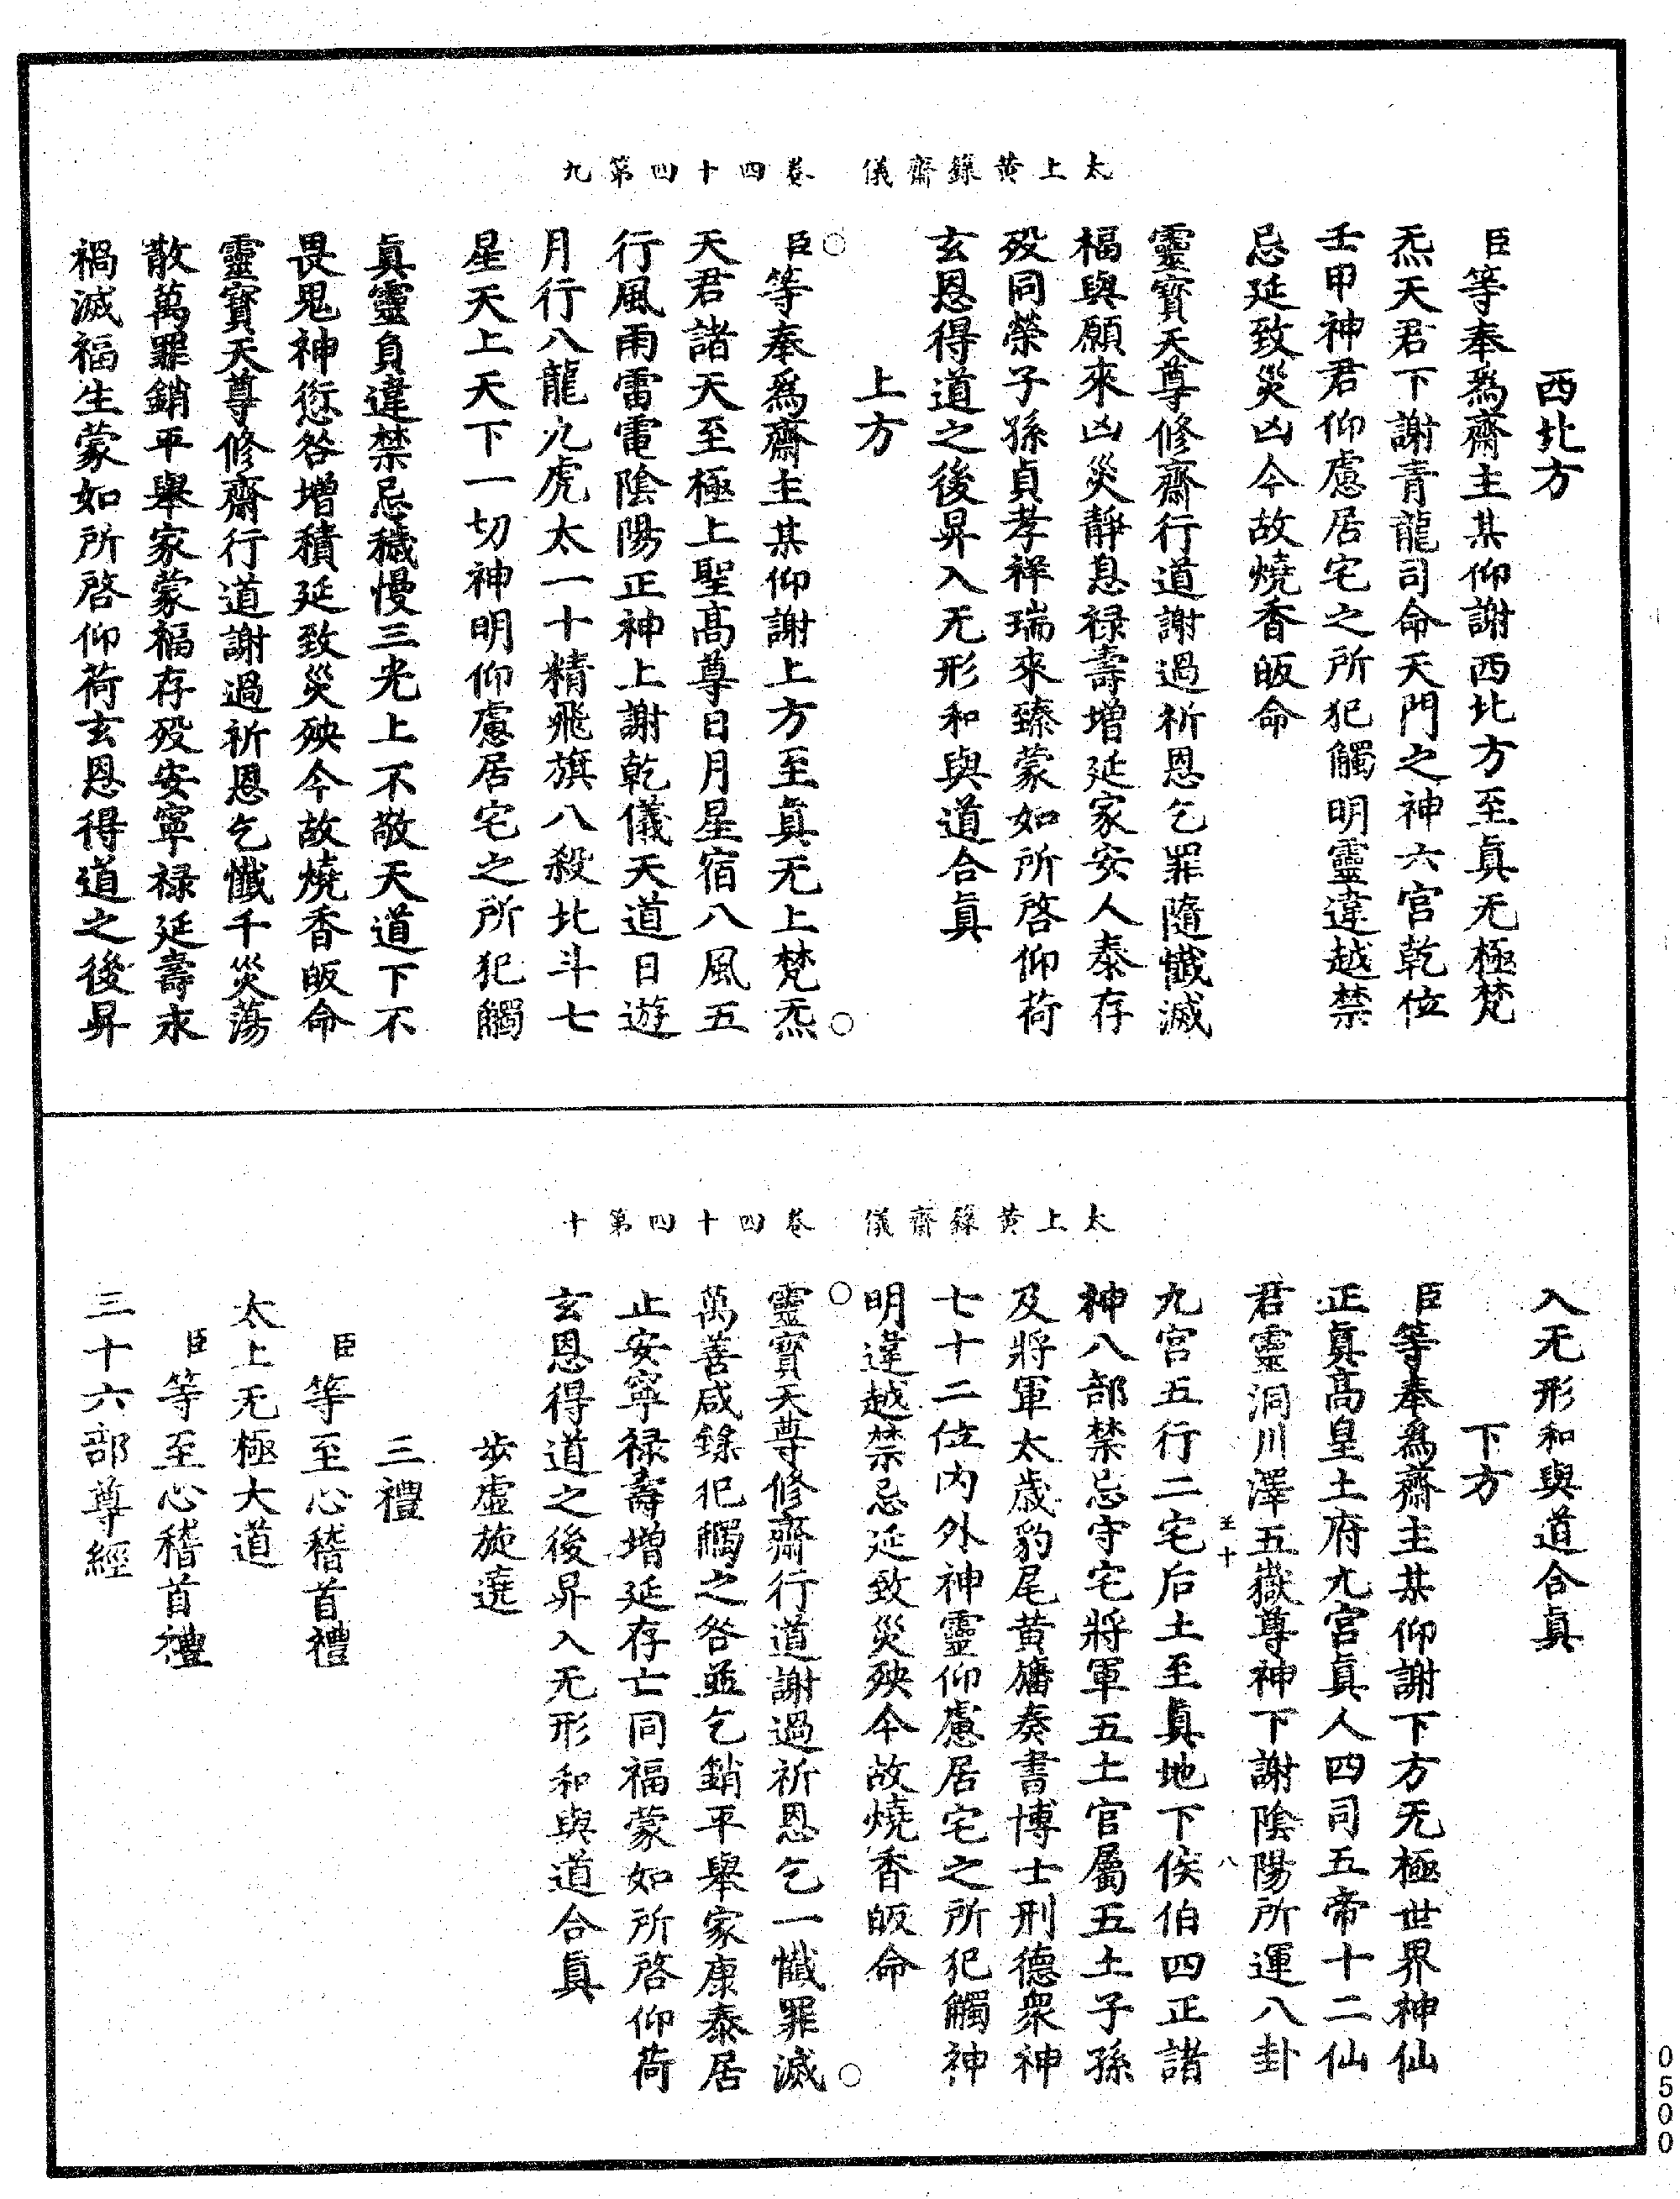 太上黃籙齋儀 卷四十四第九
西北方
臣等奉爲齋主某仰謝西北方至眞无極梵
炁天君下謝青龍司命天門之神六官乾位
壬甲神君仰慮居宅之所犯觸明靈違越禁
忌延致災凶今故燒香皈命
靈寶天尊修齋行道謝過祈恩乞罪隨懺滅
福與願來凶災靜息禄壽增延家安人泰存
殁同榮子孫貞孝祥瑞來臻蒙如所啓仰荷
玄恩得道之後昇入无形和與道合眞
上方
臣等奉爲齋主某仰謝上方至眞无上梵炁
天君諸天至極上聖髙尊日月星宿八風五
行風雨雷電陰陽正神上謝乾儀天道日遊
月行八龍九虎太一十精飛旗八殺北斗七
星天上天下一切神明仰慮居宅之所犯觸
眞靈負違禁忌穢慢三光上不敬天道下不
畏鬼神愆咎增積延致災殃今故燒香皈命
靈寶天尊修齋行道謝過祈恩乞懺千災蕩
散萬罪銷平舉家蒙福存殁安寧禄延壽永
禍滅福生蒙如所啓仰荷玄恩得道之後昇
太上黃籙齋儀 卷四十四第十
入无形和與道合眞
下方
臣等奉爲齋主某仰謝下方无極世界神仙
正眞髙皇土府九宫眞人四司五帝十二仙
君靈洞川澤五嶽尊神下謝陰陽所運八卦
五十 八
九宫五行二宅后土至眞地下侯伯四正諸
神八部禁忌守宅將軍五土官屬五土子孫
及將軍太歲豹尾黄旛奏書博士刑德衆神
七十二位内外神靈仰慮居宅之所犯觸神
明違越禁忌延致災殃今故燒香皈命
靈寶天尊修齋行道謝過祈恩乞一懺罪滅
萬善咸錄犯觸之咎並乞銷平舉家康泰居
止安寧禄壽增延存亡同福蒙如所啓仰荷
玄恩得道之後昇入无形和與道合眞
步虛旋遶
三禮
臣等至心稽首禮
太上无極大道
臣等至心稽首禮
三十六部尊經
0500